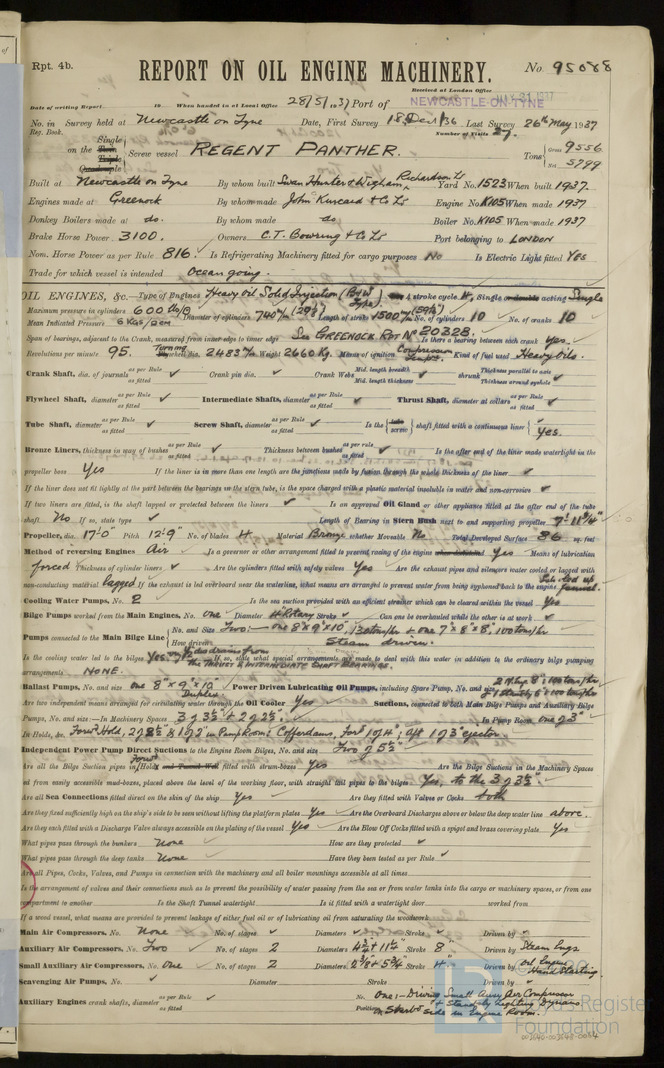 of
Rpt. 4b.
REPORT ON OIL ENGINE MACHINERY.
No. 95088
Received at London Office
MAY 31 1937
Date of writing Report. 19 When handed in at Local Office 28/5/1937 Port of NEWCASTLE-ON-TYNE
No. in Survey held at Newcastle on Tyne Date, First Survey 18 Dec/36 Last Survey 26th May 1937
Reg. Book. Number of Visits 27.
Single
on the Twin Screw vessel REGENT PANTHER.
Triple
Quadruple
Tons Gross 9556
Net 5799
Built at Newcastle on Tyne By whom built Swan Hunter & Wigham Richardson Ld Yard No. 1523 When built 1937.
Engines made at Greenock By whom made John Kincaid & Co Ld Engine No. K105 When made 1937
Donkey Boilers made at do. By whom made do Boiler No. K105 When made 1937
Brake Horse Power 3100. Owners C.T. Bowring & Co Ld Port belonging to LONDON
Nom. Horse Power as per Rule 816. Is Refrigerating Machinery fitted for cargo purposes No Is Electric Light fitted Yes
Trade for which vessel is intended Ocean going.
OIL ENGINES, &c. Type of Engines Heavy Oil Solid Injection (B&W Type) 2 or 4 stroke cycle 4. Single or double acting Single
Maximum pressure in cylinders 600 lbs/□" Diameter of cylinders 740 m/m (29⅛") Length of stroke 1500 m/m (59 1/16") No. of cylinders 10 No. of cranks 10
Mean Indicated Pressure 6 Kgs/
Span of bearings, adjacent to the Crank, measured from inner edge to inner edge See GREENOCK RPT No 20328. Is there a bearing between each crank Yes.
Revolutions per minute 95. Turning wheel dia. 2483 m/m Weight 2660 Kg. Means of ignition Compression Kind of fuel used Heavy oils.
Crank Shaft, dia. of journals as per Rule as fitted Crank pin dia. Crank Webs Mid. length breadth Mid. length thickness shrunk Thickness parallel to axis Thickness around eyehole
Flywheel Shaft, diameter as per Rule as fitted Intermediate Shafts, diameter as per Rule as fitted Thrust Shaft, diameter at collars as per Rule as fitted
Tube Shaft, diameter as per Rule as fitted Screw Shaft, diameter as per Rule as fitted Is the tube screw shaft fitted with a continuous liner Yes.
Bronze Liners, thickness in way of bushes as per Rule as fitted Thickness between bushes as per rule as fitted Is the after end of the liner made watertight in the
propeller boss Yes If the liner is in more than one length are the junctions made by fusion through the whole thickness of the liner
If the liner does not fit tightly at the part between the bearings in the stern tube, is the space charged with a plastic material insoluble in water and non-corrosive
If two liners are fitted, is the shaft lapped or protected between the liners Is an approved Oil Gland or other appliance fitted at the after end of the tube
shaft No If so, state type Length of Bearing in Stern Bush next to and supporting propeller 7'-11¾"
Propeller, dia. 17'-0" Pitch 12'-9" No. of blades 4 Material Bronze whether Moveable No Total Developed Surface 86 sq. feet
Method of reversing Engines Air Is a governor or other arrangement fitted to prevent racing of the engine Yes Means of lubrication
forced Thickness of cylinder liners Are the cylinders fitted with safety valves Yes Are the exhaust pipes and silencers water cooled or lagged with
non-conducting material lagged If the exhaust is overboard near the waterline, what means are arranged to prevent water from being syphoned back to the engine led up funnel.
Cooling Water Pumps, No. 2 Is the sea suction provided with an efficient strainer which can be cleared within the vessel Yes
Bilge Pumps worked from the Main Engines, No. one Diameter 4" Rotary Stroke Can one be overhauled while the other is at work
Pumps connected to the Main Bilge Line No. and Size Two:— one 8"x9"x10", 130 tons/hr & one 7"x8"x8", 100 tons/hr
How driven Steam driven.
Is the cooling water led to the bilges Yes. drains from THE THRUST & INTERMEDIATE SHAFT BEARINGS. If so, state what special arrangements are made to deal with this water in addition to the ordinary bilge pumping
arrangements NONE.
Ballast Pumps, No. and size one 8"x9"x10" Duplex. Power Driven Lubricating Oil Pumps, including Spare Pump, No. and size
Are two independent means arranged for circulating water through the Oil Cooler Yes Suctions, connected to both Main Bilge Pumps and Auxiliary Bilge
Pumps, No. and size:—In Machinery Spaces 3 @ 3½" + 2 @ 2½". In Pump Room one @ 3"
In Holds, &c. Forwd Hold, 2 @ 2½" & 1 @ 2" in Pump Room; Cofferdams, Ford 1 @ 4"; Aft 1 @ 3" ejector
Independent Power Pump Direct Suctions to the Engine Room Bilges, No. and size Two @ 5½"
Are all the Bilge Suction pipes in Forwd Holds and Tunnel Well fitted with strum-boxes Yes Are the Bilge Suctions in the Machinery Spaces
led from easily accessible mud-boxes, placed above the level of the working floor, with straight tail pipes to the bilges Yes, to the 3 @ 3½".
Are all Sea Connections fitted direct on the skin of the ship Yes Are they fitted with Valves or Cocks both
Are they fixed sufficiently high on the ship's side to be seen without lifting the platform plates Yes Are the Overboard Discharges above or below the deep water line above.
Are they each fitted with a Discharge Valve always accessible on the plating of the vessel Yes Are the Blow Off Cocks fitted with a spigot and brass covering plate Yes
What pipes pass through the bunkers None How are they protected
What pipes pass through the deep tanks None Have they been tested as per Rule
Are all Pipes, Cocks, Valves, and Pumps in connection with the machinery and all boiler mountings accessible at all times
Is the arrangement of valves and their connections such as to prevent the possibility of water passing from the sea or from water tanks into the cargo or machinery spaces, or from one
compartment to another Is the Shaft Tunnel watertight Is it fitted with a watertight door worked from
If a wood vessel, what means are provided to prevent leakage of either fuel oil or of lubricating oil from saturating the woodwork
Main Air Compressors, No. None No. of stages Diameters Stroke Driven by
Auxiliary Air Compressors, No. Two No. of stages 2 Diameters 4¾" + 11¼" Stroke 8" Driven by Steam Engs
Small Auxiliary Air Compressors, No. one No. of stages 2 Diameters 2⅜" & 5¾ Stroke 4" Driven by oil Engine Hand Starting.
Scavenging Air Pumps, No. Diameter Stroke Driven by
Auxiliary Engines crank shafts, diameter as per Rule as fitted No. One:— Driving Small Auxy Air Compressor & Standby Lighting Dynamo.
Position Starbd side in Engine Room.
© 2020
Lloyd's Register
Foundation
003540-003548-0084